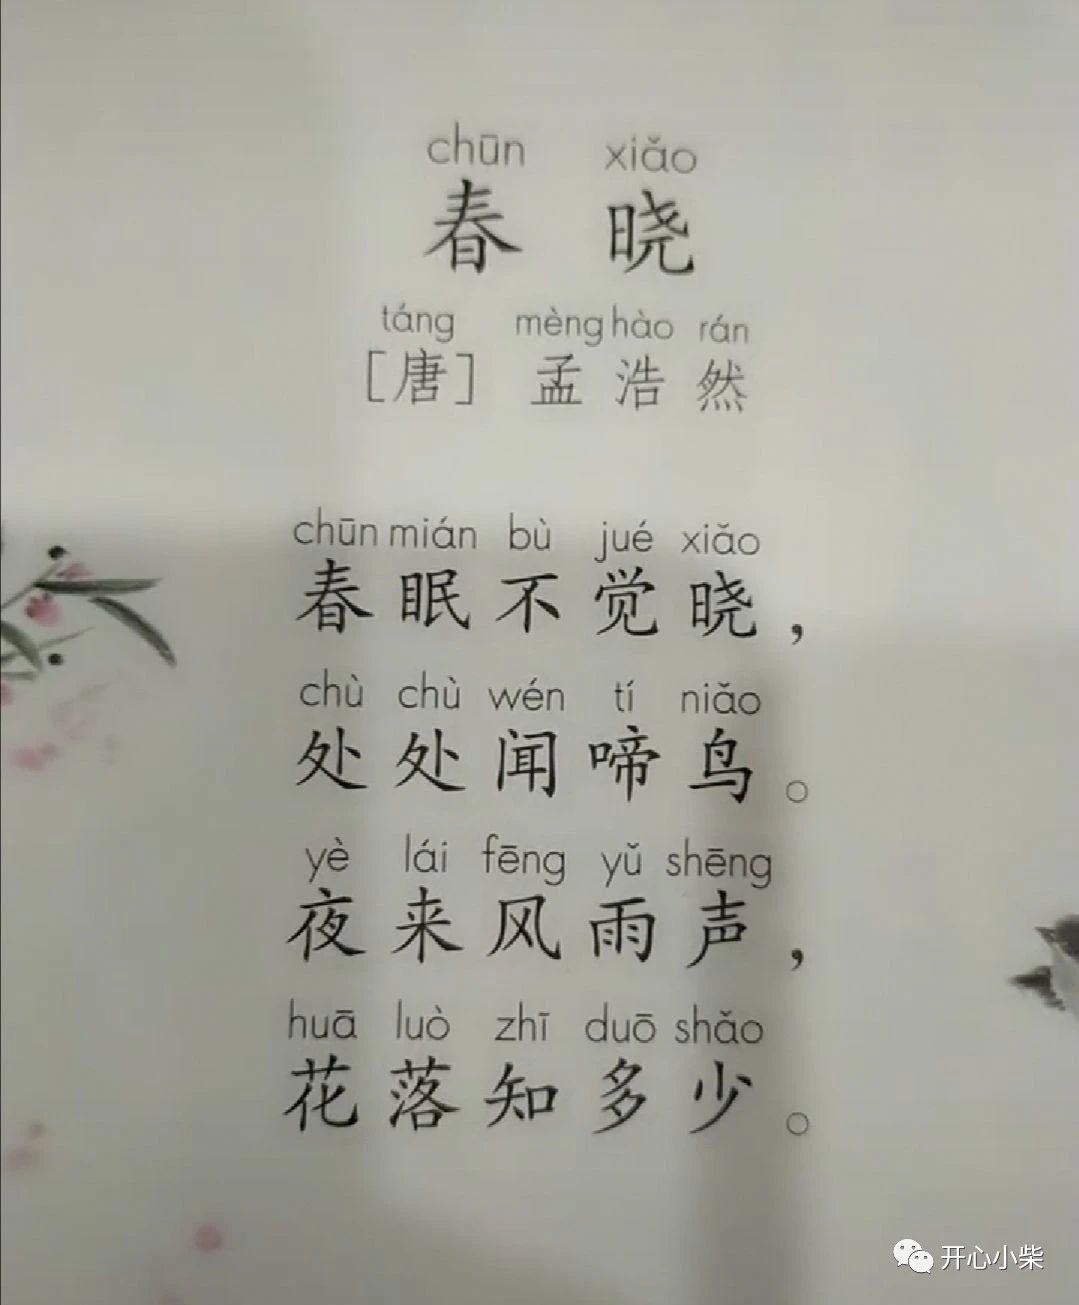 chūn xiǎo
春 晓
táng mèng hào rán
[唐] 孟 浩 然
chūn mián bù jué xiǎo
春 眠 不 觉 晓，
chù chù wén tí niǎo
处 处 闻 啼 鸟。
yè lái fēng yǔ shēng
夜 来 风 雨 声，
huā luò zhī duō shǎo
花 落 知 多 少。
开心小柴